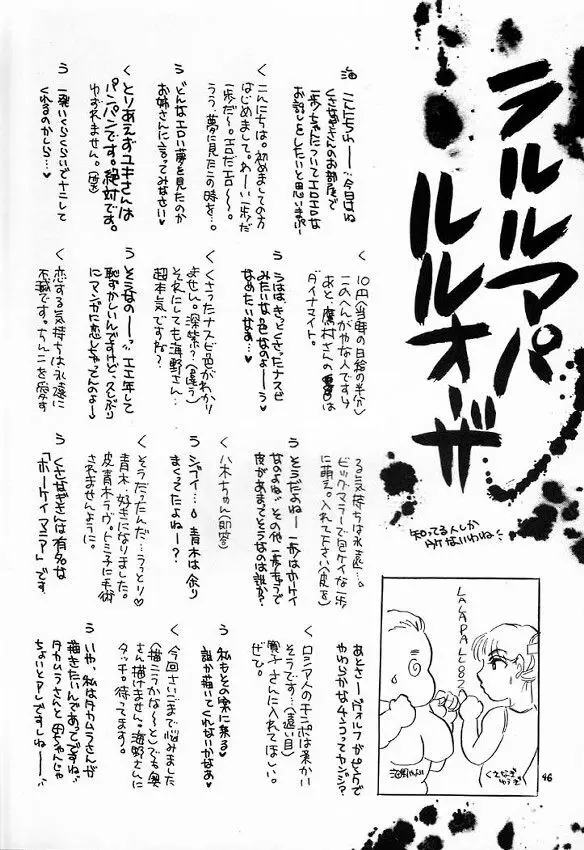 ラルルマパ
ルルオーザ
知ってる人しか
ウケないわね
海 こんにちわー…今日はね
くさなぎさんのお部屋で
一歩ちゃんについてエロエロな
お話しをしたいと思いまーす
く こんにちは。初めましての方
はじめまして。わーい一歩だ
一歩だ〜。エロだエロ〜〜。
うう、夢に見たこの時を…。
う どんなエロい夢を見たのか
お姉さんに言ってみなさい♥
く とりあえずユキさんは
パンパンです。絶対です。
ゆずれません。
う 一発いくらくらいでナニして
くれるのかしら…♥
く 10円(当時の日給の半分)
このへんがやな人ですけ
あと、鷹村さんの
ダイナマイト。
う うはは、きっとくさったナスビ
みたいな色なのよーう
なめたいなあ…♥
く くさったナスビ色がわかり
ません。深緑?(違う)
それにしても海野さん…
超本気ですな?
う そうなのー…エエ年して
恥ずかしいんですけど、久しぶり
にマンガに恋しちゃってんのよ〜
く 恋する気持ちは永遠に
不滅です。ちんこを愛す
る気持ちは永遠…。
ビッグマラーで包ケイな一歩
に萌え。入れて下さい(皮を)
う そうだよねー一歩はホーケイ
なのよね♥その他一歩キャラで
皮があまってそうなのは誰か?
く 八木ちゃん(即答)
う ジブイ…。青木は余り
まくってたよねー?
く そうだったんだ…うっとり♥
青木…好きになりました。
皮青木ラヴ。トミ子に手術
されませんように。
う くさなぎさんは有名な
「ホーケイマニア」です。
う あとさーヴォルフがピンクで
やわらかな4ンコってカンジ?
く ロシア人のチンポは柔かい
そうです…(遠い目)
寛子さんに入れてほしい。
ぜひ。
う 私もその案に乗る♥
誰か描いてくれないかなあ♥
く 今回さいごまで悩みました
(描こうかな〜)とても奥
さん描けません。海野さんに
タッチ。待ってます。
う いや、私はタカムラさんが
描きたいんであってですね
タカムラさんと母ちゃんじゃ
ちょいとアレですしねー…
LALAPALLOOZA
くさなぎ
ゆうぎ
46